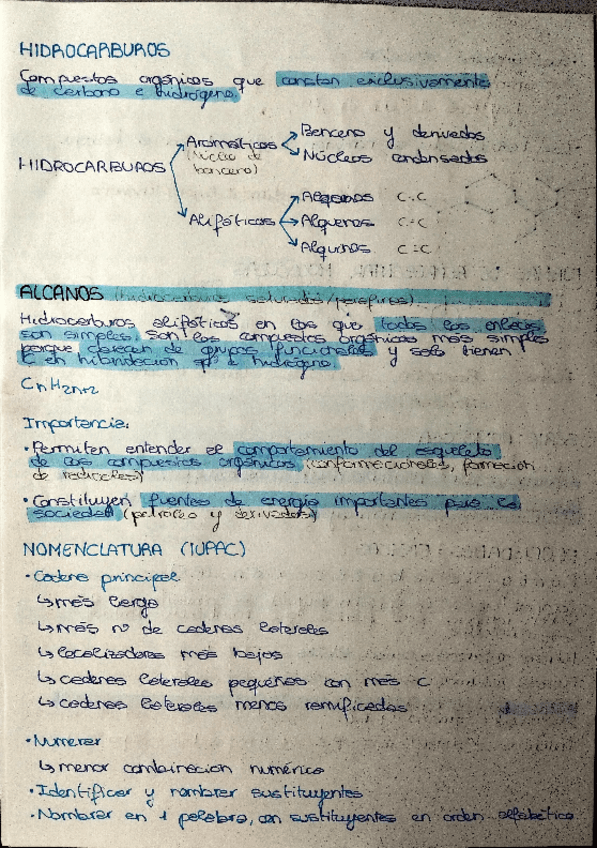 HIDROCARBUROS
Compuestos orgánicos que constan exclusivamente
de carbono e hidrógeno.
Aromáticos
(Núcleo de
benceno)
Benceno y derivados
Núcleos condensados
HIDROCARBUROS
Alifáticos
Alcanos C-C
Alquenos C=C
Alquinos C≡C
ALCANOS (hidrocarburos saturados/parafinas)
Hidrocarburos alifáticos en los que todos los enlaces
son simples. Son los compuestos orgánicos más simples
porque carecen de grupos funcionales y solo tienen
C en hibridación sp³ e hidrógeno.
CnH2n+2
Importancia:
· Permiten entender el comportamiento del esqueleto
de los compuestos orgánicos (conformacionales, formación
de radicales)
· Constituyen fuentes de energía importantes para la
sociedad (petróleo y derivados)
NOMENCLATURA (IUPAC)
· Cadena principal
↳ más larga
↳ más nº de cadenas laterales
↳ localizadores más bajos
↳ cadenas laterales pequeñas con más C
↳ cadenas laterales menos ramificadas
· Numerar
↳ menor combinación numérica
· Identificar y nombrar sustituyentes
· Nombrar en 1 palabra, con sustituyentes en orden alfabético